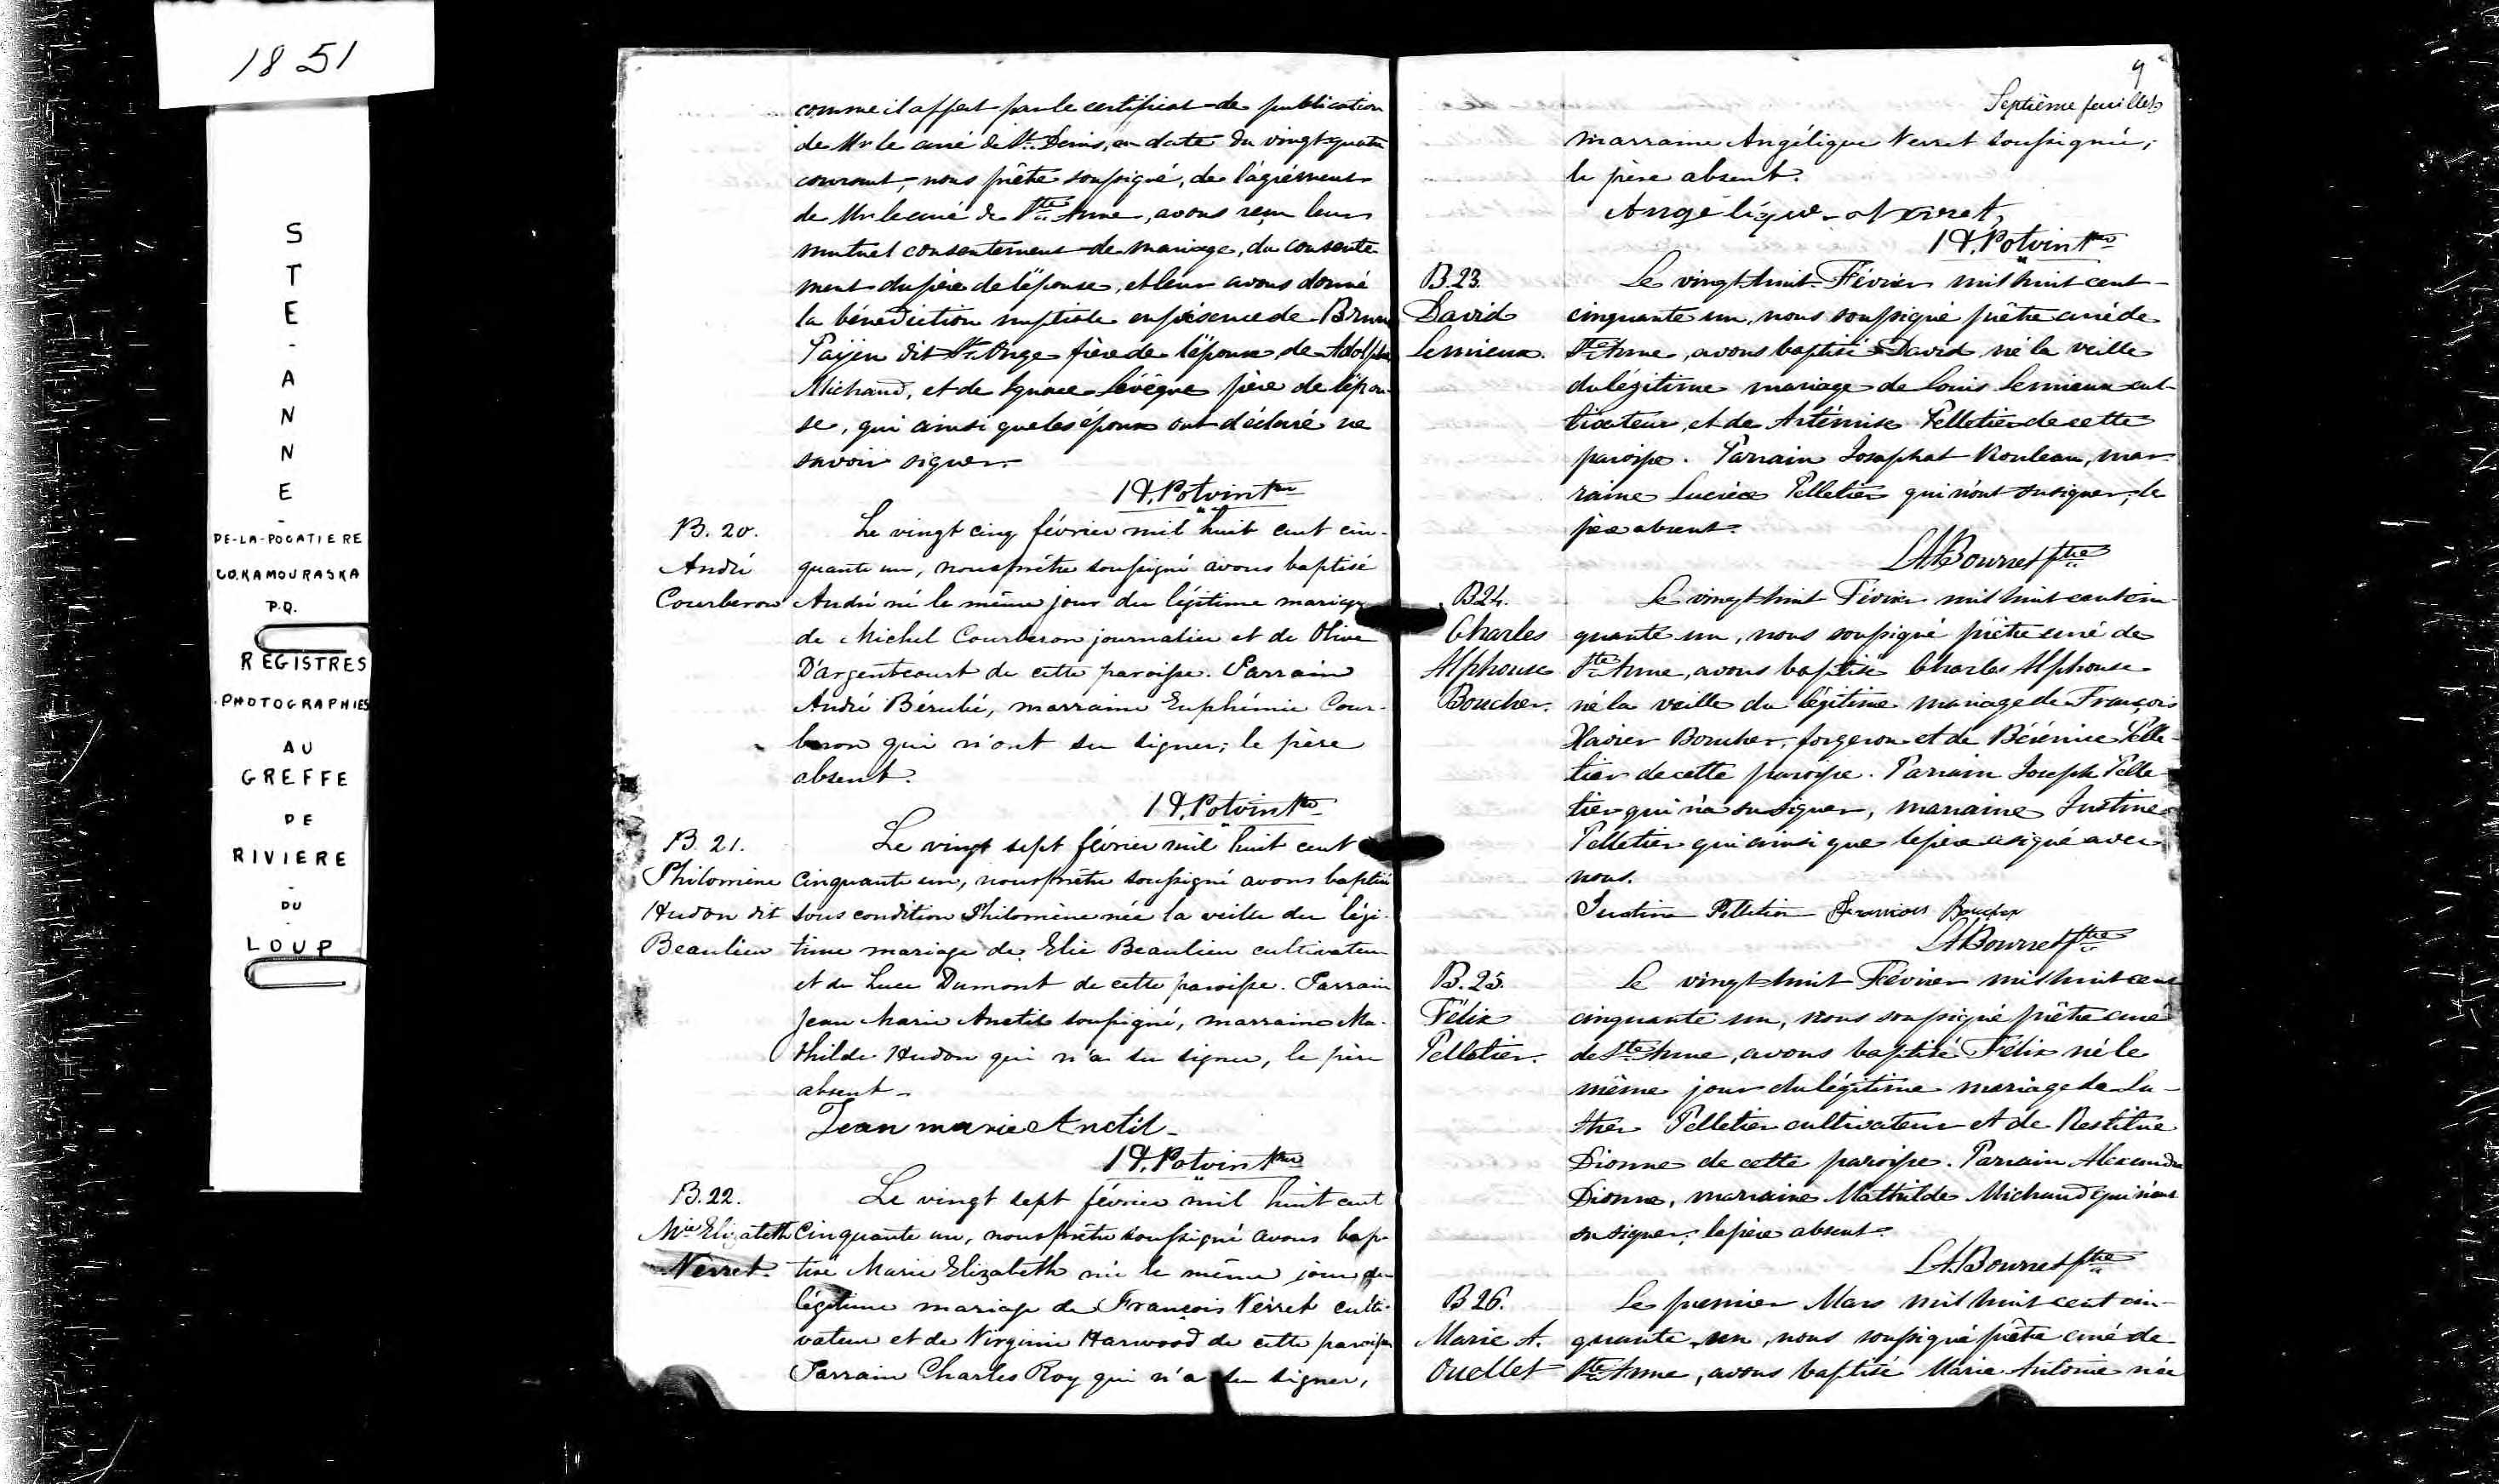 1851
STE-ANNE-
DE-LA-POCATIERE
CO.KAMOURASKA
P.Q.
REGISTRES
PHOTOGRAPHIES
AU
GREFFE
DE
RIVIERE
-
DU
-
LOUP
comme il appert par le certificat de publication
de Mr le curé de St. Denis, en date du vingt-quatre
courant, nous prêtre soussigné, de l'agrément
de Mr le curé de Ste Anne, avons reçu leur
mutuel consentement de mariage, du consente
ment du père de l'épouse, et leur avons donné
la bénédiction nuptiale en présence de Bruno
Payen dit St. Onge frère de l'époux, de Adolphe
Michaud, et de Ignace Lévêque père de l'épou-
se, qui ainsi que les époux ont déclaré ne
savoir signer.
Potvin Ptre
B. 20.
André
Courberon
Le vingt cinq février mil huit cent cin-
quante un, nous prêtre soussigné avons baptisé
André né le même jour du légitime mariage
de Michel Courberon journalier et de Olive
D'argentcourt de cette paroisse. Parrain
André Bérubé, marraine Euphémie Cour-
beron qui n'ont su signer; le père
absent.
Potvin Ptre
B. 21.
Philomène
Hudon dit
Beaulieu
Le vingt sept février mil huit cent
cinquante un, nous prêtre soussigné avons baptisé
sous condition Philomène née la veille du légi-
time mariage de Elie Beaulieu cultivateur
et de Luce Dumont de cette paroisse. Parrain
Jean Marie Anctil soussigné, marraine Ma-
thilde Hudon qui n'a su signer, le père
absent.
Jean marie Anctil
Potvin Ptre
B. 22.
Mie Elizabeth
Verret.
Le vingt sept février mil huit cent
cinquante un, nous prêtre soussigné avons bap-
tisé Marie Elizabeth née le même jour du
légitime mariage de François Verret culti-
vateur et de Virginie Harwood de cette paroisse
Parrain Charles Roy qui n'a su signer,
9
Septième feuillet
marraine Angélique Verret soussignée,
le père absent.
Angélique Verret
Potvin Ptre
B. 23.
David
Lemieux.
Le vingt huit Février mil huit cent
cinquante un, nous soussigné prêtre curé de
Ste Anne, avons baptisé David né la veille
du légitime mariage de Louis Lemieux cul-
tivateur, et de Artémise Pelletier de cette
paroisse. Parrain Josaphat Rouleau, mar-
raine Lucrèce Pelletier qui n'ont su signer; le
père absent.
Bourret Ptre
B 24.
Charles
Alphonse
Boucher.
Le vingt huit Février mil huit cent cin-
quante un, nous soussigné prêtre curé de
Ste Anne, avons baptisé Charles Alphonse
né la veille du légitime mariage de François
Xavier Boucher, forgeron et de Bérénice Pelle-
tier de cette paroisse. Parrain Joseph Pelle-
tier qui n'a su signer, marraine Justine
Pelletier qui ainsi que le père a signé avec
nous.
Justine Pelletier François Boucher
Bourret Ptre
B. 25.
Félix
Pelletier.
Le vingt huit Février mil huit cent
cinquante un, nous soussigné prêtre curé
de Ste Anne, avons baptisé Félix né le
même jour du légitime mariage de Lu-
ther Pelletier cultivateur et de Restitue
Dionne de cette paroisse. Parrain Alexandre
Dionne, marraine Mathilde Michaud qui n'ont
su signer; le père absent.
Bourret Ptre
B 26.
Marie A.
Ouellet
Le premier Mars mil huit cent cin-
quante un, nous soussigné prêtre curé de
Ste Anne, avons baptisé Marie Antonie née